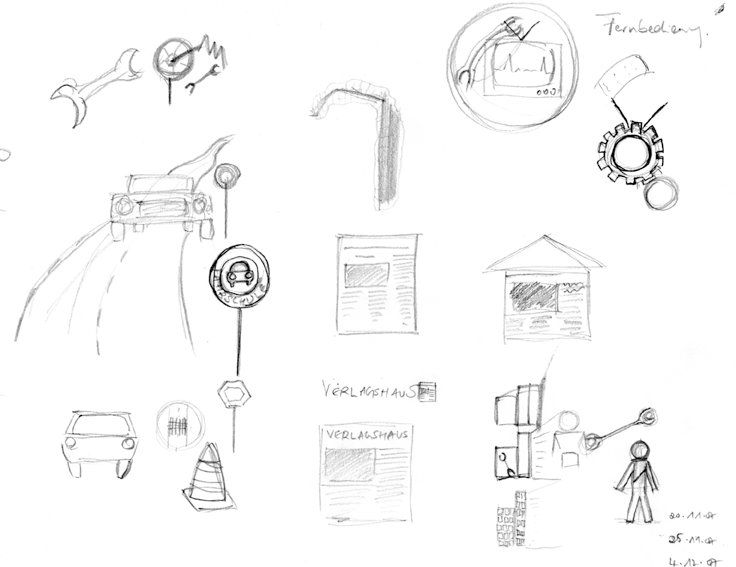 Fernbedieng.
VERLAGSHAUS
VERLAGSHAUS
20.11.07
25.11.07
4.12.07